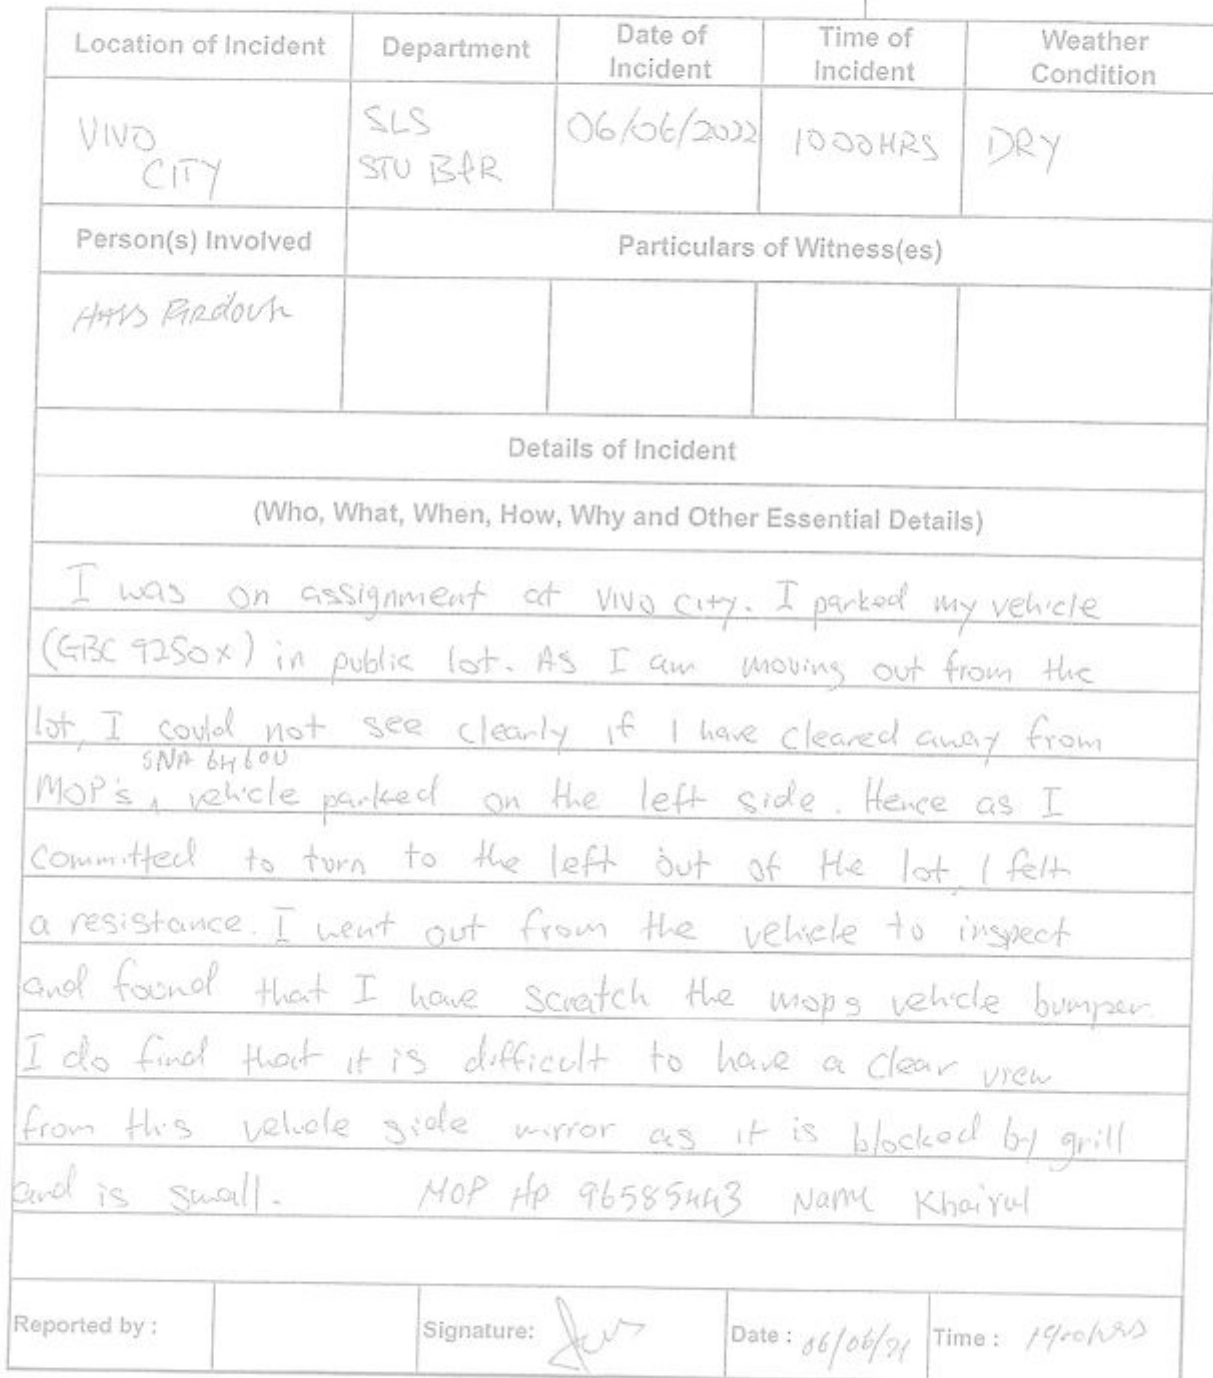 Location of Incident Department Date of Incident Time of Incident Weather Condition
VIVO CITY SLS STU 06/06/2022 1000HRS DRY
Person(s) Involved Particulars of Witness(es)
Details of Incident
(Who, What, When, How, Why and Other Essential Details)
I was on assignment at VIVO City. I parked my vehicle
(GBC 9250X) in public lot. As I am moving out from the
lot, I could not see clearly if I have cleared away from
SNA 6460U
MOP's vehicle parked on the left side. Hence as I
committed to turn to the left out of the lot, I felt
a resistance. I went out from the vehicle to inspect
and found that I have scratch the mops vehicle bumper.
I do find that it is difficult to have a clear view
from this vehicle side mirror as it is blocked by grill
and is small. MOP HP 96585443 Name Khairul
Reported by : Signature: Date : Time :